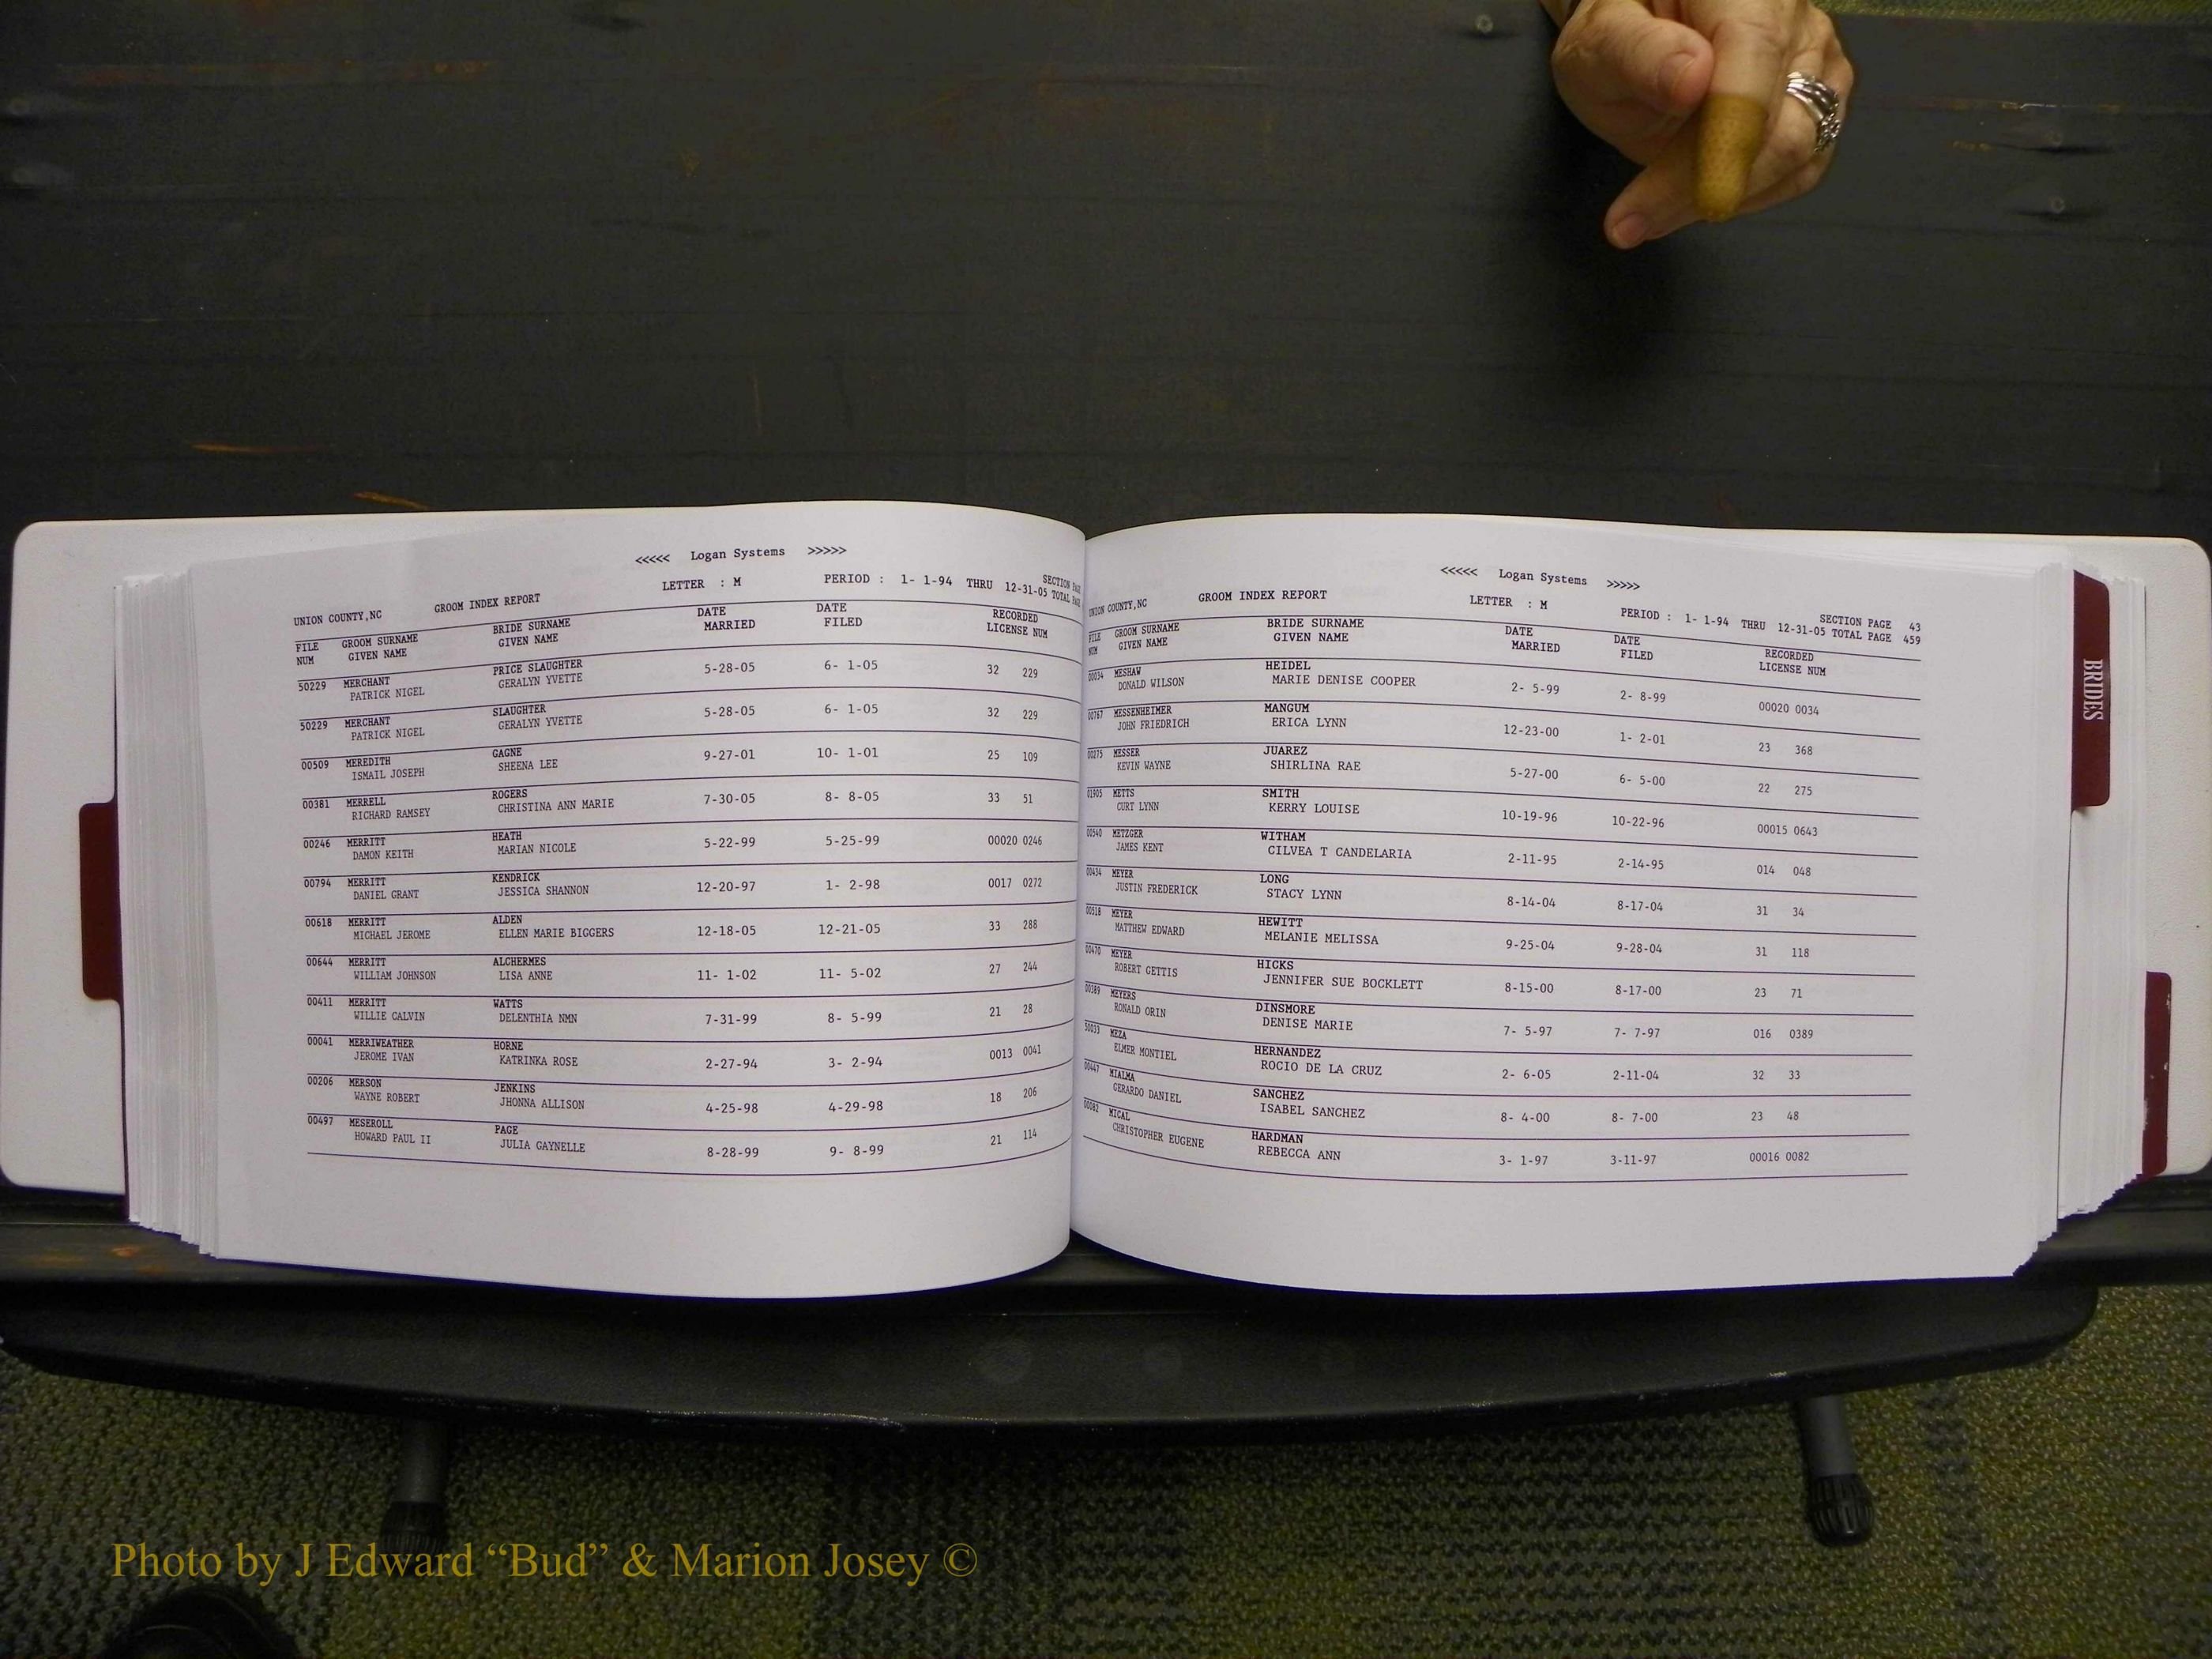 <<<<< Logan Systems >>>>>
UNION COUNTY,NC GROOM INDEX REPORT LETTER : M PERIOD : 1- 1-94 THRU 12-31-05 SECTION
TOTAL
FILE GROOM SURNAME BRIDE SURNAME DATE DATE RECORDED
NUM GIVEN NAME GIVEN NAME MARRIED FILED LICENSE NUM
50229 MERCHANT PRICE SLAUGHTER 5-28-05 6- 1-05 32 229
PATRICK NIGEL GERALYN YVETTE
50229 MERCHANT SLAUGHTER 5-28-05 6- 1-05 32 229
PATRICK NIGEL GERALYN YVETTE
00509 MEREDITH GAGNE 9-27-01 10- 1-01 25 109
ISMAIL JOSEPH SHEENA LEE
00381 MERRELL ROGERS 7-30-05 8- 8-05 33 51
RICHARD RAMSEY CHRISTINA ANN MARIE
00246 MERRITT HEATH 5-22-99 5-25-99 00020 0246
DAMON KEITH MARIAN NICOLE
00794 MERRITT KENDRICK 12-20-97 1- 2-98 0017 0272
DANIEL GRANT JESSICA SHANNON
00618 MERRITT ALDEN 12-18-05 12-21-05 33 288
MICHAEL JEROME ELLEN MARIE BIGGERS
00644 MERRITT ALCHERMES 11- 1-02 11- 5-02 27 244
WILLIAM JOHNSON LISA ANNE
00411 MERRITT WATTS 7-31-99 8- 5-99 21 28
WILLIE CALVIN DELENTHIA NMN
00041 MERRIWEATHER HORNE 2-27-94 3- 2-94 0013 0041
JEROME IVAN KATRINKA ROSE
00206 MERSON JENKINS 4-25-98 4-29-98 18 206
WAYNE ROBERT JHONNA ALLISON
00497 MESEROLL PAGE 8-28-99 9- 8-99 21 114
HOWARD PAUL II JULIA GAYNELLE
<<<<< Logan Systems >>>>>
UNION COUNTY,NC GROOM INDEX REPORT LETTER : M PERIOD : 1- 1-94 THRU 12-31-05 SECTION PAGE 43
TOTAL PAGE 459
FILE GROOM SURNAME BRIDE SURNAME DATE DATE RECORDED
NUM GIVEN NAME GIVEN NAME MARRIED FILED LICENSE NUM
00034 MESHAW HEIDEL 2- 5-99 2- 8-99 00020 0034
DONALD WILSON MARIE DENISE COOPER
00767 MESSENHEIMER MANGUM 12-23-00 1- 2-01 23 368
JOHN FRIEDRICH ERICA LYNN
00275 MESSER JUAREZ 5-27-00 6- 5-00 22 275
KEVIN WAYNE SHIRLINA RAE
01905 METTS SMITH 10-19-96 10-22-96 00015 0643
CURT LYNN KERRY LOUISE
00540 METZGER WITHAM 2-11-95 2-14-95 014 048
JAMES KENT CILVEA T CANDELARIA
00434 MEYER LONG 8-14-04 8-17-04 31 34
JUSTIN FREDERICK STACY LYNN
00518 MEYER HEWITT 9-25-04 9-28-04 31 118
MATTHEW EDWARD MELANIE MELISSA
00470 MEYER HICKS 8-15-00 8-17-00 23 71
ROBERT GETTIS JENNIFER SUE BOCKLETT
00389 MEYERS DINSMORE 7- 5-97 7- 7-97 016 0389
RONALD ORIN DENISE MARIE
50033 MEZA HERNANDEZ 2- 6-05 2-11-04 32 33
ELMER MONTIEL ROCIO DE LA CRUZ
00447 MIALMA SANCHEZ 8- 4-00 8- 7-00 23 48
GERARDO DANIEL ISABEL SANCHEZ
00082 MICAL HARDMAN 3- 1-97 3-11-97 00016 0082
CHRISTOPHER EUGENE REBECCA ANN
BRIDES
Photo by J Edward “Bud” & Marion Josey ©